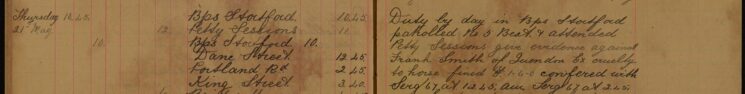 Thursday 10.45 Bps Stortford 10.45 Duty by day in Bps Stortford
21st May 12. Petty Sessions 10. patrolled No 5 Beat & attended
10. Bps Stortford 10. Petty Sessions give evidence against
Dane Street 12.45 Frank Smith of Ex cruelty
Portland Rd 2.45 to horse fined £1-6-0 conferred with
King Street 3.20 Sergt 67 at 12.45. am Sergt 67 at 2.45.